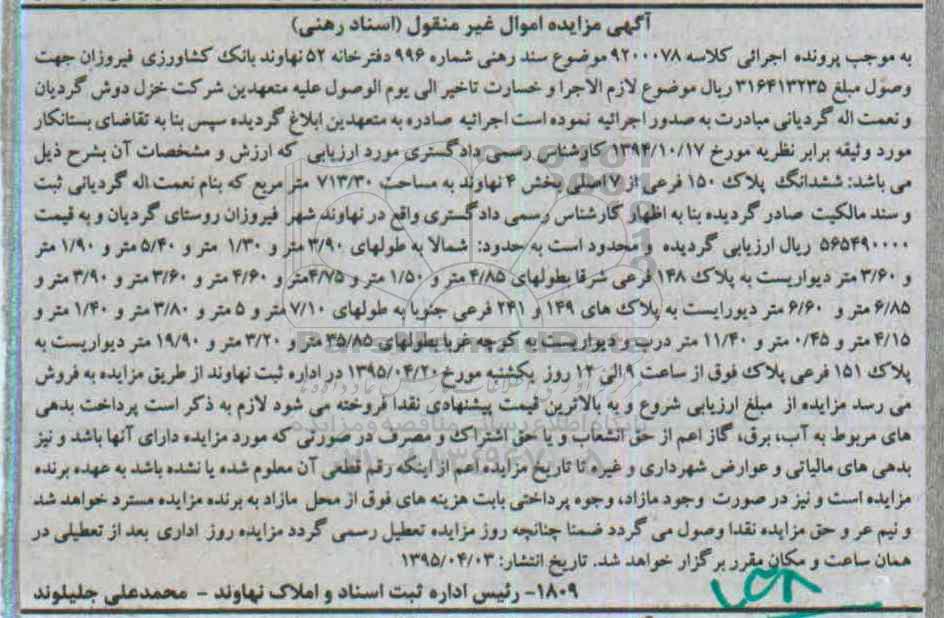 آگهی مزایده اموال غیر منقول (اسناد رهنی)
به موجب پرونده اجرائی کلاسه ۹۲۰۰۰۷۸ موضوع سند رهنی شماره ۹۹۶ دفتر خانه ۵۲ نهاوند بانک کشاورزی فیروزان جهت
وصول مبلغ ۳۱۶۴۱۳۲۳۵ ریال موضوع لازم الاجرا و خسارت تاخیر الی یوم الوصول علیه متعهدین شرکت خزل دوش گردیان
و نعمت اله گردیانی مبادرت به صدور اجرائیه نموده است اجرائیه صادره به متعهدین ابلاغ گردیده سپس بنا به تقاضای بستانکار
مورد وثیقه برابر نظریه مورخ ۱۳۹۴/۱۰/۱۷ کارشناس رسمی دادگستری مورد ارزیابی که ارزش و مشخصات آن بشرح ذیل
می باشد: ششدانگ پلاک ۱۵۰ فرعی از ۷ اصلی بخش ۴ نهاوند به مساحت ۷۱۳/۳۰ متر مربع که بنام نعمت اله گردیانی ثبت
و سند مالکیت صادر گردیده بنا به اظهار کارشناس رسمی دادگستری واقع در نهاوند شهر فیروزان روستای گردیان و به قیمت
۵۶۵۴۹۰۰۰۰ ریال ارزیابی گردیده و محدود است به حدود: شمالا به طولهای ۳/۹۰ متر و ۱/۳۰ متر و ۵/۴۰ متر و ۱/۹۰ متر
و ۳/۶۰ متر دیواریست به پلاک ۱۴۸ فرعی شرقا بطولهای ۴/۸۵ متر و ۱/۵۰ متر و ۴/۷۵متر و ۴/۶۰ متر و ۳/۶۰ متر و ۳/۹۰ متر و
۶/۸۵ متر و ۶/۶۰ متر دیورایست به پلاک های ۱۴۹ و ۲۴۱ فرعی جنوبا به طولهای ۷/۱۰ متر و ۵ متر و ۳/۸۰ متر و ۱/۴۰ متر و
۴/۱۵ متر و ۰/۴۵ متر و ۱۱/۴۰ متر درب و دیواریست به کوچه غربا بطولهای ۳۵/۸۵ متر و ۳/۲۰ متر و ۱۹/۹۰ متر دیواریست به
پلاک ۱۵۱ فرعی پلاک فوق از ساعت ۹ الی ۱۲ روز یکشنبه مورخ ۱۳۹۵/۰۴/۲۰ در اداره ثبت نهاوند از طریق مزایده به فروش
می رسد مزایده از مبلغ ارزیابی شروع و به بالاترین قیمت پیشنهادی نقدا فروخته می شود لازم به ذکر است پرداخت بدهی
های مربوط به آب، برق، گاز اعم از حق انشعاب و یا حق اشتراک و مصرف در صورتی که مورد مزایده دارای آنها باشد و نیز
بدهی های مالیاتی و عوارض شهرداری و غیره تا تاریخ مزایده اعم از اینکه رقم قطعی آن معلوم شده یا نشده باشد به عهده برنده
مزایده است و نیز در صورت وجود مازاد، وجوه پرداختی بابت هزینه های فوق از محل مازاد به برنده مزایده مسترد خواهد شد
و نیم عر و حق مزایده نقدا وصول می گردد ضمنا چنانچه روز مزایده تعطیل رسمی گردد مزایده روز اداری بعد از تعطیلی در
همان ساعت و مکان مقرر برگزار خواهد شد. تاریخ انتشار: ۱۳۹۵/۰۴/۰۳
۱۸۰۹- رئیس اداره ثبت اسناد و املاک نهاوند - محمدعلی جلیلوند